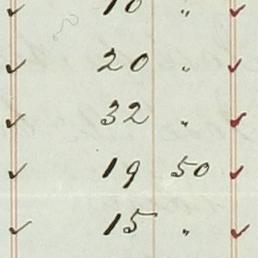 ✓ 10 " ✓
✓ 20 " ✓
✓ 32 " ✓
✓ 19 50 ✓
✓ 15 " ✓